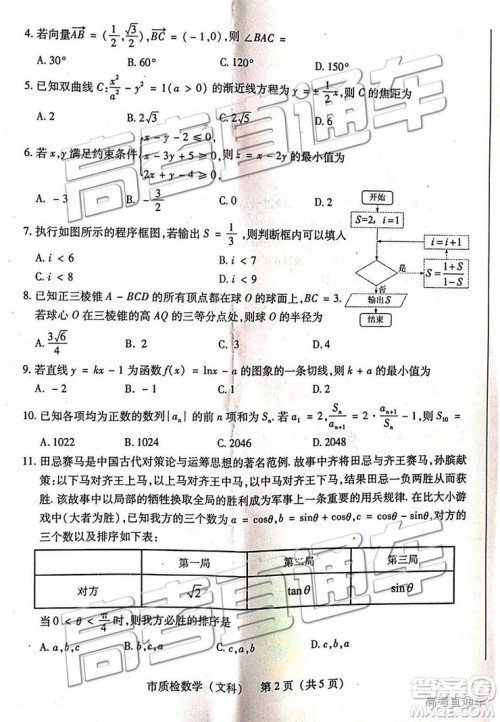 4. 若向量AB = (1/2, √3/2), BC = (-1,0), 则 ∠BAC =
A. 30° B. 60° C. 120° D. 150°
5. 已知双曲线 C: x²/a² - y² = 1(a > 0) 的渐近线方程为 y = ± 1/2 x, 则 C 的焦距为
A. 2 B. 2√3 C. 2√5 D. 6
6. 若 x, y 满足约束条件 { x - y - 2 ≤ 0
x - 3y + 5 ≥ 0, 则 z = x - 2y 的最小值为
A. -3 B. -3/2 C. D. 2
7. 执行如图所示的程序框图, 若输出 S = 1/3, 则判断框内可以是
A. i < 6 B. i < 7
C. i < 8 D. i < 9
开始
S=2, i=1
i = i+1
是
S = 1+S/1-S
否
输出 S
结束
8. 已知正三棱锥 A - BCD 的所有顶点都在球 O 的球面上, BC = 3.
若球心 O 在三棱锥的高 AQ 的三等分点处, 则球 O 的半径为
A. 3√6/4 B. 2 C. 3 D. 4
9. 若直线 y = kx - 1 为函数 f(x) = lnx - a 图象的一条切线, 则 k + a 的最小值为
A. B. C. D.
10. 已知各项均为正数的数列{aₙ}的前 n 项和为 Sₙ, a₁ = 2, Sₙ/aₙ₊₁ = 2 · Sₙ/aₙ₊₁ - 1, 则 S₁₀ =
A. 1022 B. 1024 C. 2046 D. 2048
11. 田忌赛马是中国古代对策论与运筹思想的著名范例. 故事中齐将田忌与齐王赛马, 孙膑献
策: 以下马对齐王上马, 以上马对齐王中马, 以中马对齐王下马, 结果田忌一负两胜从而获
胜. 该故事中以局部的牺牲换取全局的胜利成为军事上一条重要的用兵规律. 在比大小游
戏中(大者为胜), 已知我方的三个数为 a = cosθ, b = sinθ + cosθ, c = cosθ - sinθ, 对方的
三个数以及排序如下表:
第一局 第二局 第三局
对方 √2 tanθ sinθ
当 0 < θ < π/4 时, 则我方必胜的排序是
A. a,b,c B. b,c,a C. c,a,b D. c,b,a
市质检数学(文科) 第 2 页 (共 5 页)
高考直通车
高考直通车
高考直通车